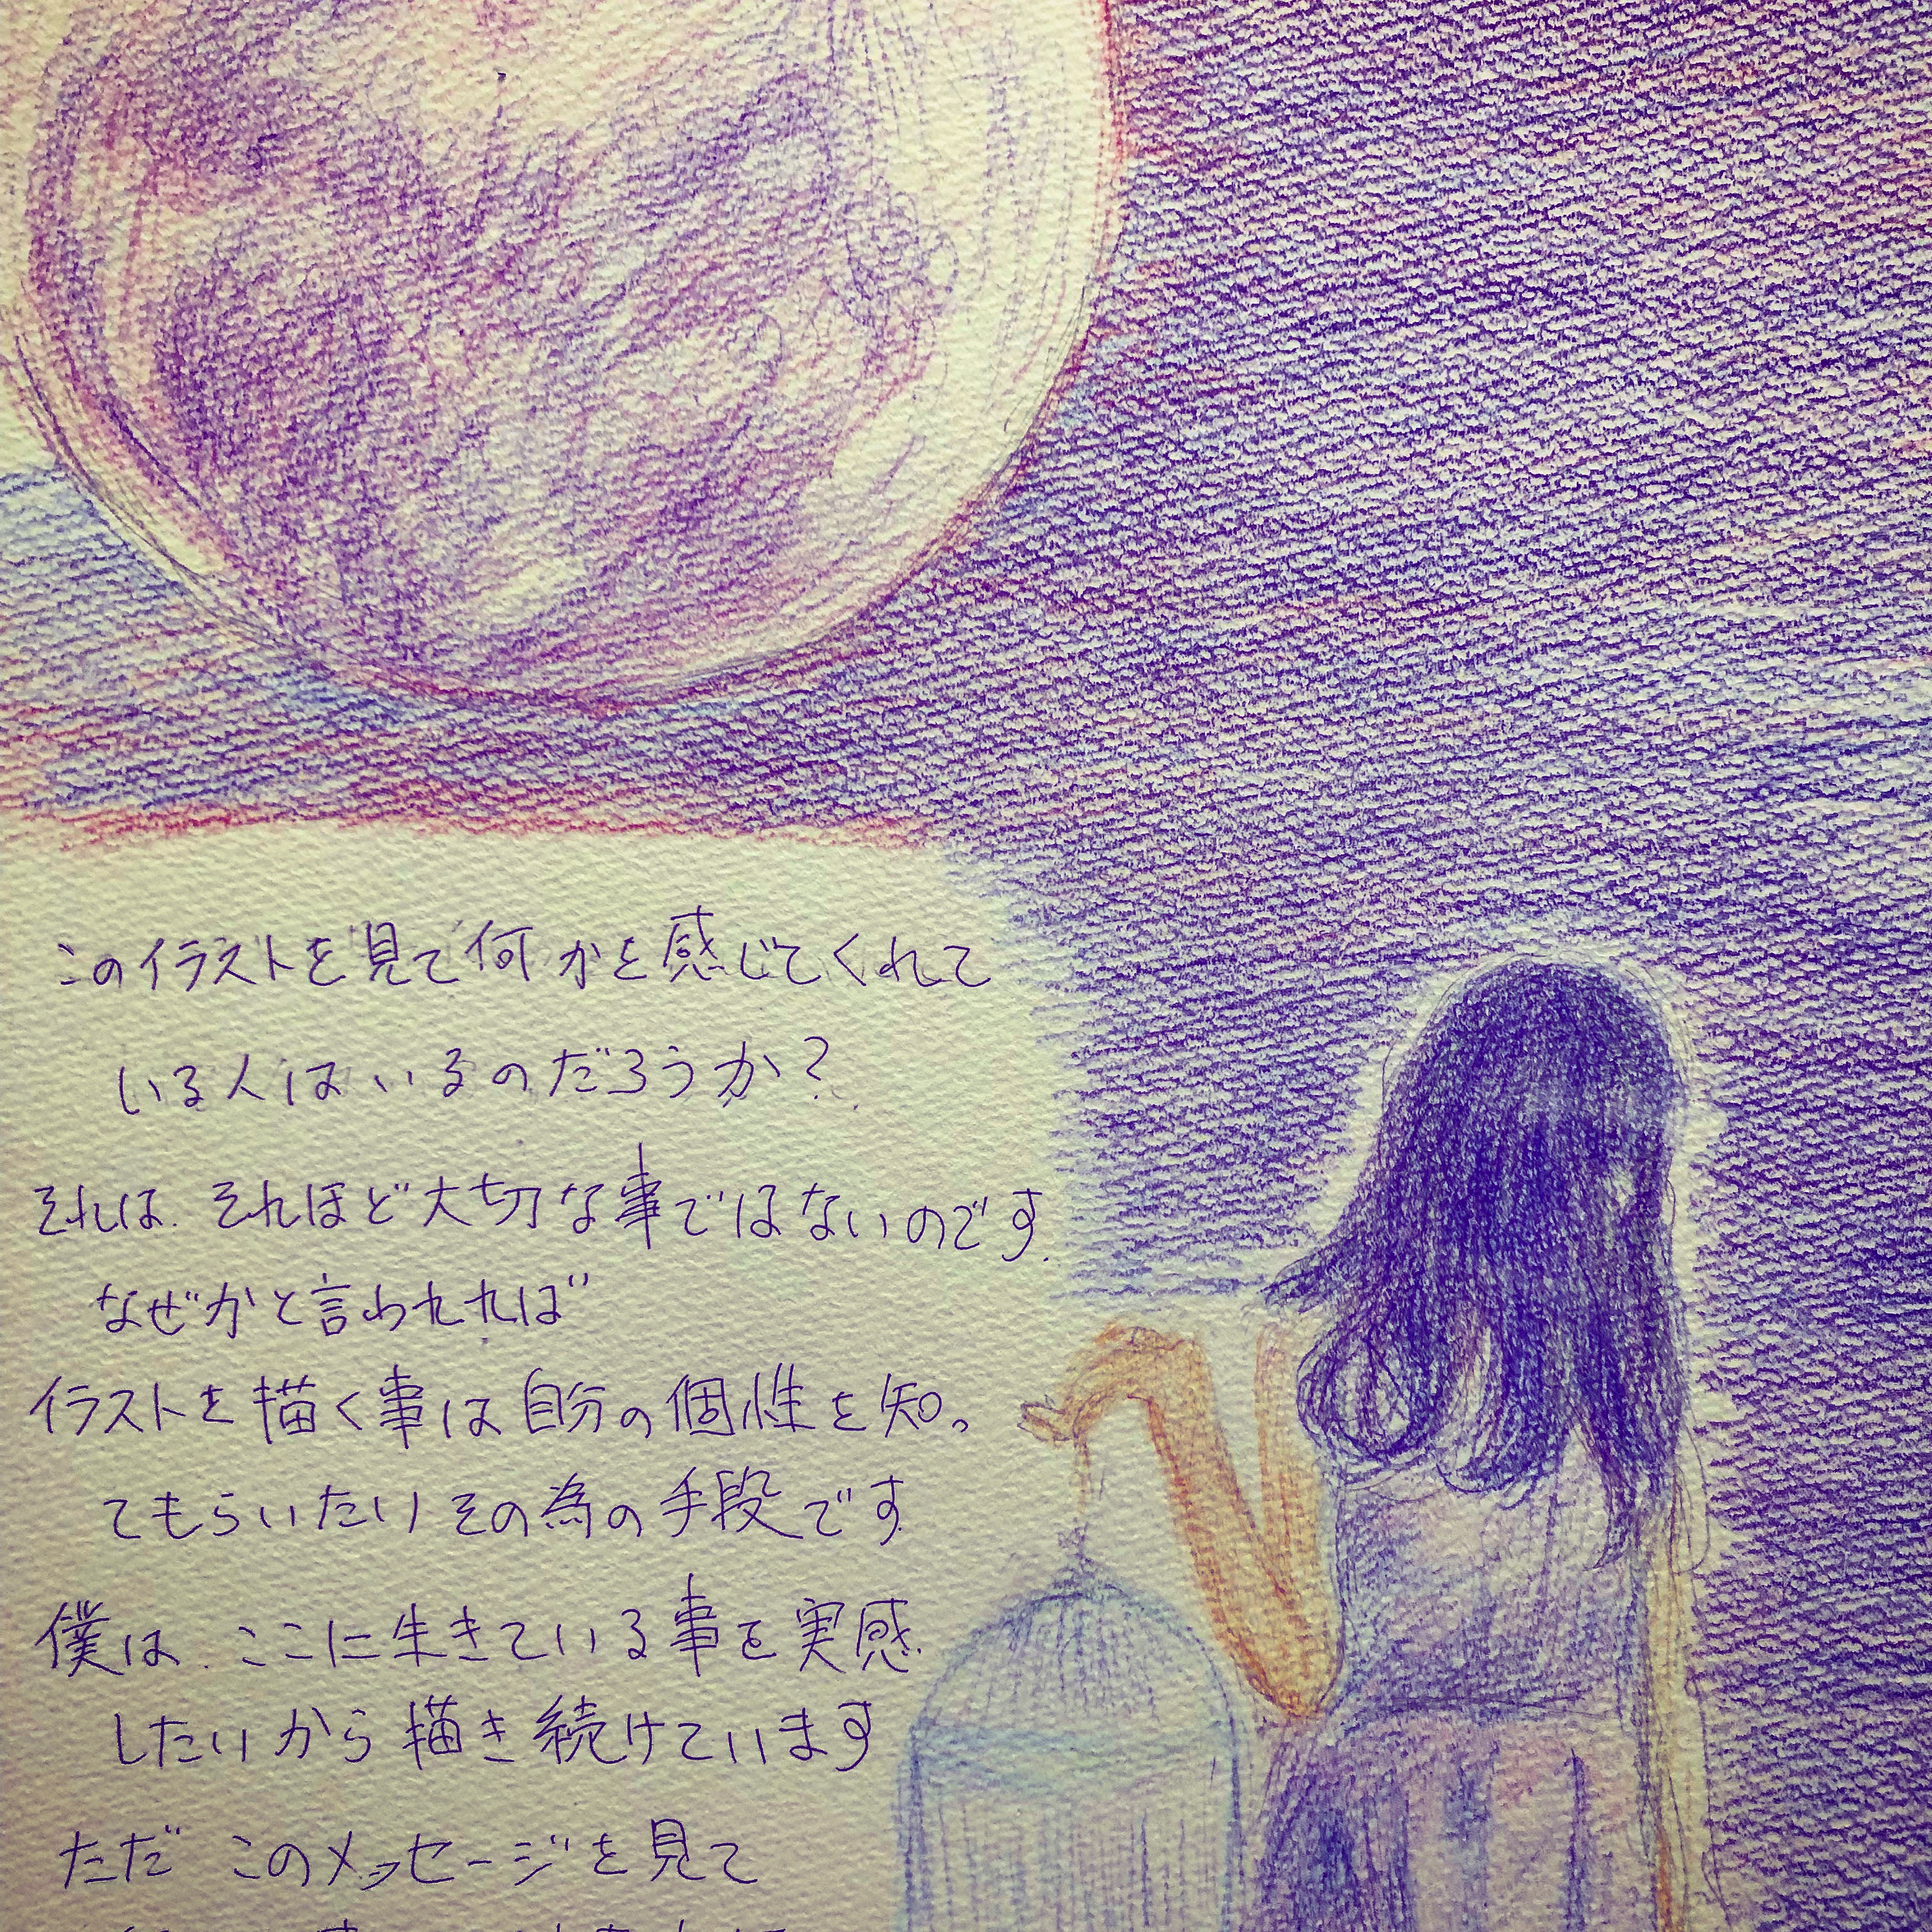 このイラストを見て何かを感じてくれて
いる人はいるのだろうか?
それは.それほど大切な事ではないのです.
なぜかと言われれば
イラストを描く事は自分の個性を知っ
てもらいたいその為の手段です
僕は.ここに生きている事を実感
したいから描き続けています
ただ このメッセージを見て